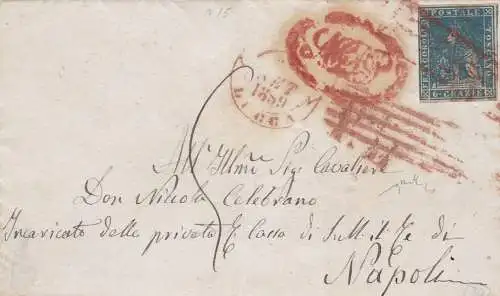 N 15
FRANCOBOLLO POSTALE TOSCANO
6 CRAZIE
SET
1859
LUCCA
P.D.
All' Illmo Sig. Cavaliere
Don Nicola Celebrano
Incaricato delle private R. Cassa di S. M. il Re di
Napoli